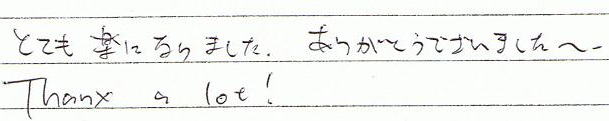 とても楽になりました. ありがとうございました〜-
Thanx a lot!